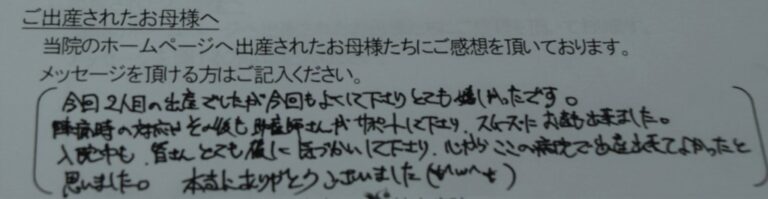 ご出産されたお母様へ
当院のホームページへ出産されたお母様たちにご感想を頂いております。
メッセージを頂ける方はご記入ください。
今回2人目の出産でしたが今回もよくして下さりとても嬉しかったです。
陣痛時の対応は その後も助産師さんがサポートして下さり、スムーズに お産も出来ました。
入院中も、皆さん とても優しく気づかいして下さり、心から ここの病院で出産出来てよかったと
思いました。 本当にありがとうございました